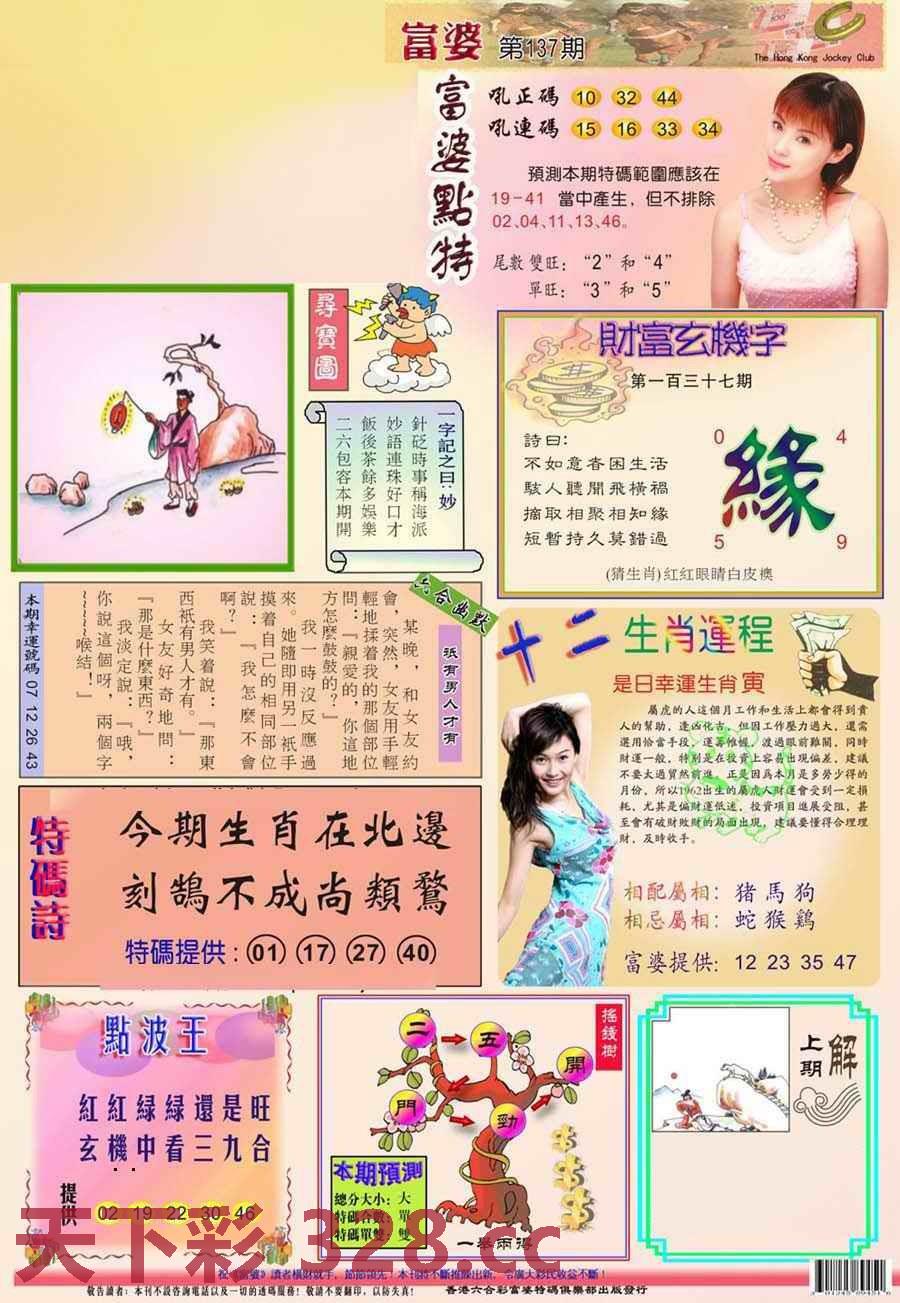 富婆 第137期
The Hong Kong Jockey Club
富婆點特
吼正碼 10 32 44
吼連碼 15 16 33 34
預測本期特碼範圍應該在
19-41 當中產生，但不排除
02、04、11、13、46。
尾數 雙旺：“2”和“4”
單旺：“3”和“5”
尋寶圖
一字記之曰：妙
針砭時事稱海派
妙語連珠好口才
飯後茶餘多娛樂
二六包容本期開
財富玄機字
第一百三十七期
詩曰：
不如意者困生活
駭人聽聞飛橫禍
摘取相聚相知緣
短暫持久莫錯過
緣
0 4
5 9
(猜生肖)紅紅眼睛白皮襖
六合幽默
祇有男人才有
某晚，和女友約
會，突然，女友用手輕
輕地揉着我的那個部位
問：『親愛的，你這地
方怎麼鼓鼓的？』
我一時沒反應過
來。她隨即用另一衹手
摸着自己的相同部位
說：『我怎麼不會
啊？』
我笑着說：『那東
西衹有男人才有。』
女友好奇地問：
『那是什麼東西？』
我淡定說：『哦，
你說這個呀，兩個字
~~~~~喉結！』
本期幸運號碼 07 12 26 43
十二生肖運程
是日幸運生肖 寅
屬虎的人這個月工作和生活上都會得到貴
人的幫助，逢凶化吉。但因工作壓力過大，還需
選用恰當手段，運籌帷幄，渡過眼前難關，同時
財運一般，特別是在投資上容易出現偏差，建議
不要太過貿然前進。正是因爲本月是多勞少得的
月份，所以1962出生的屬虎人財運會受到一定損
耗，尤其是偏財運低迷，投資項目進展受阻，甚
至會有破財敗財的局面出現，建議要懂得合理理
財，及時收手。
相配屬相：豬 馬 狗
相忌屬相：蛇 猴 鷄
富婆提供：12 23 35 47
特碼詩
今期生肖在北邊
刻鵠不成尚類鶩
特碼提供：01 17 27 40
點波王
紅紅緑緑還是旺
玄機中看三九合
提供 02 19 22 30 46
搖錢樹
二 五 開
門 勁
本期預測
總分大小：大
特碼合數：單
特碼單雙：雙
一舉兩得
上期解
天下彩 328.cc
祝《富婆》讀者橫財就手，節節領先！本刊將不斷推陳出新，令廣大彩民收益不斷！
敬告讀者：本刊不設咨詢電話以及一切的透碼服務！敬請不要翻印，以防失真！
香港六合彩富婆特碼俱樂部出版發行